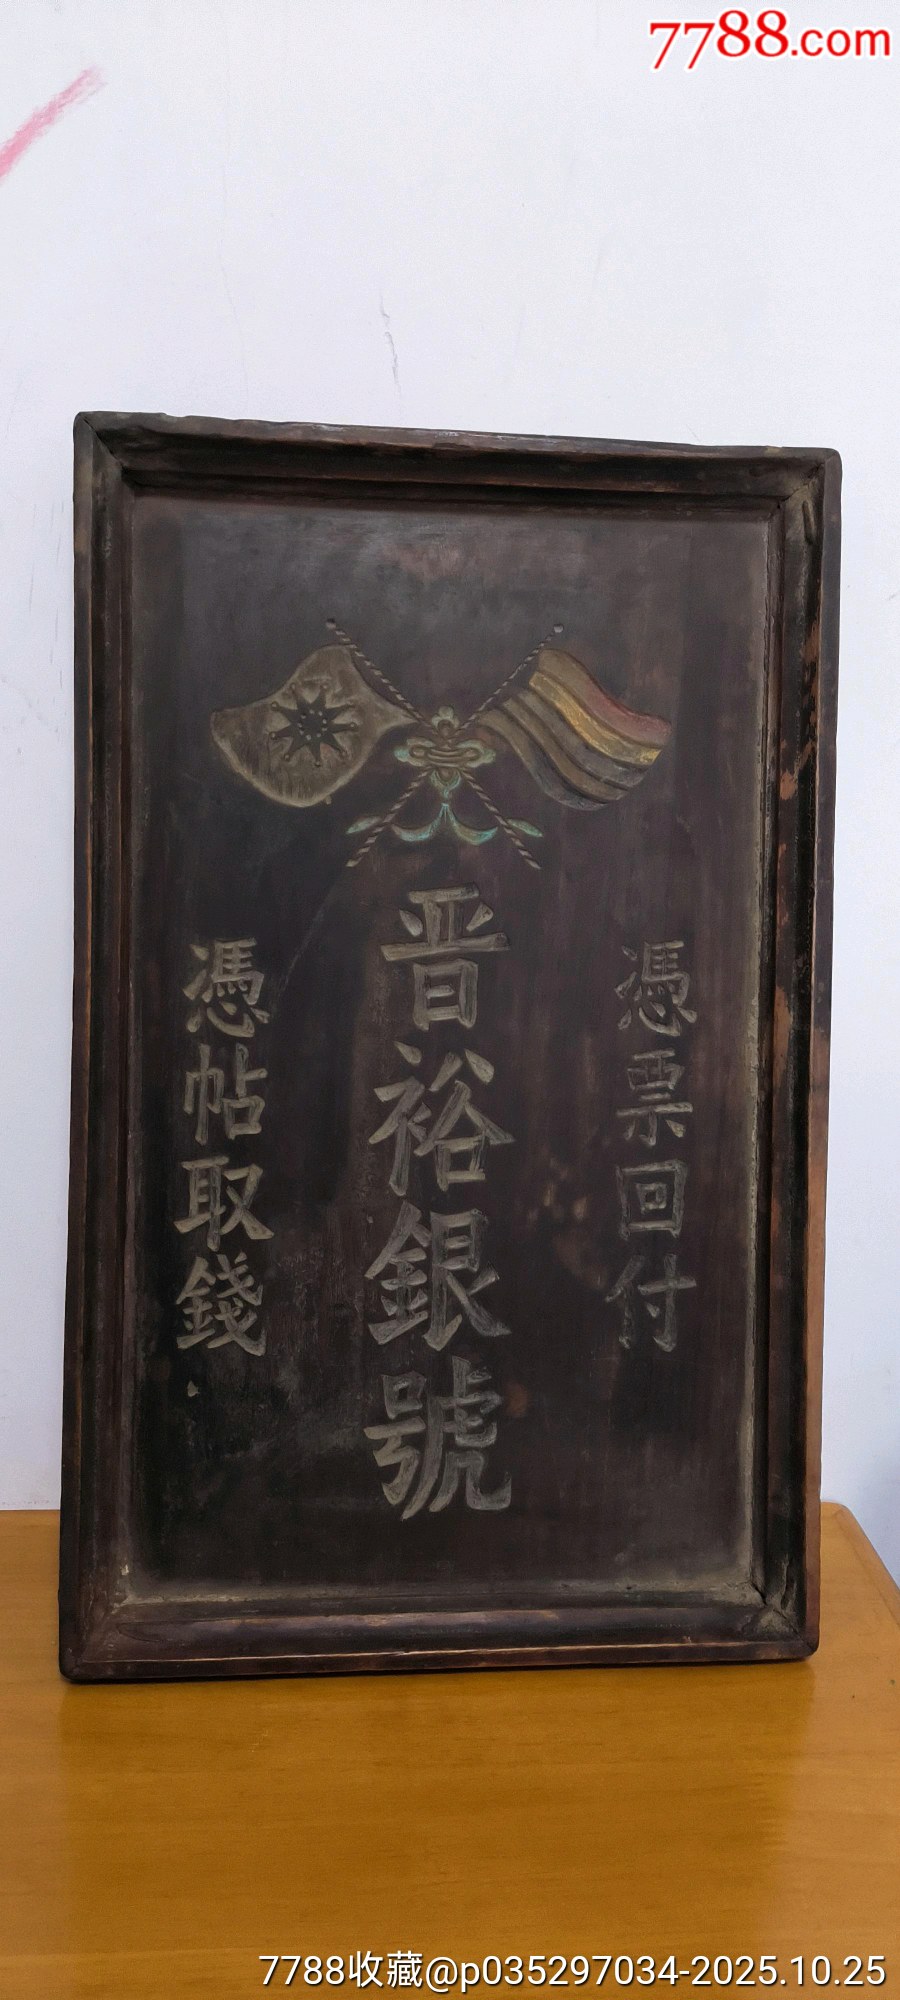 7788.com
憑票回付
晋裕銀號
憑帖取錢
7788收藏@p035297034-2025.10.25